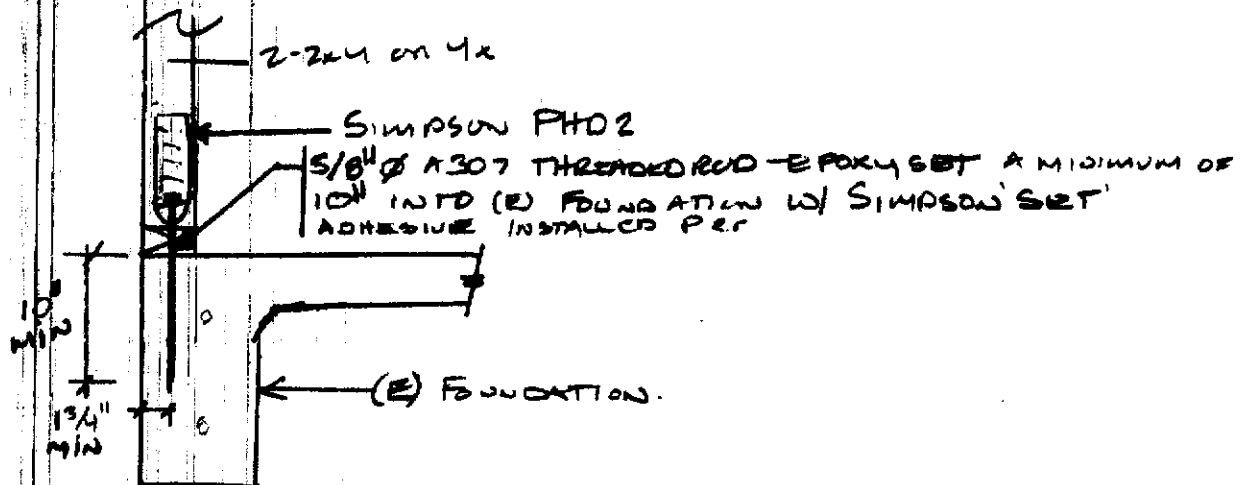 2-2x4 on 4x
SIMPSON PHD2
5/8" Ø A307 THREADED ROD - EPOXY SET A MINIMUM OF
10" INTO (E) FOUNDATION W/ SIMPSON 'SET'
ADHESIVE INSTALLED Per
10"
MIN
(E) FOUNDATION.
1 3/4"
MIN